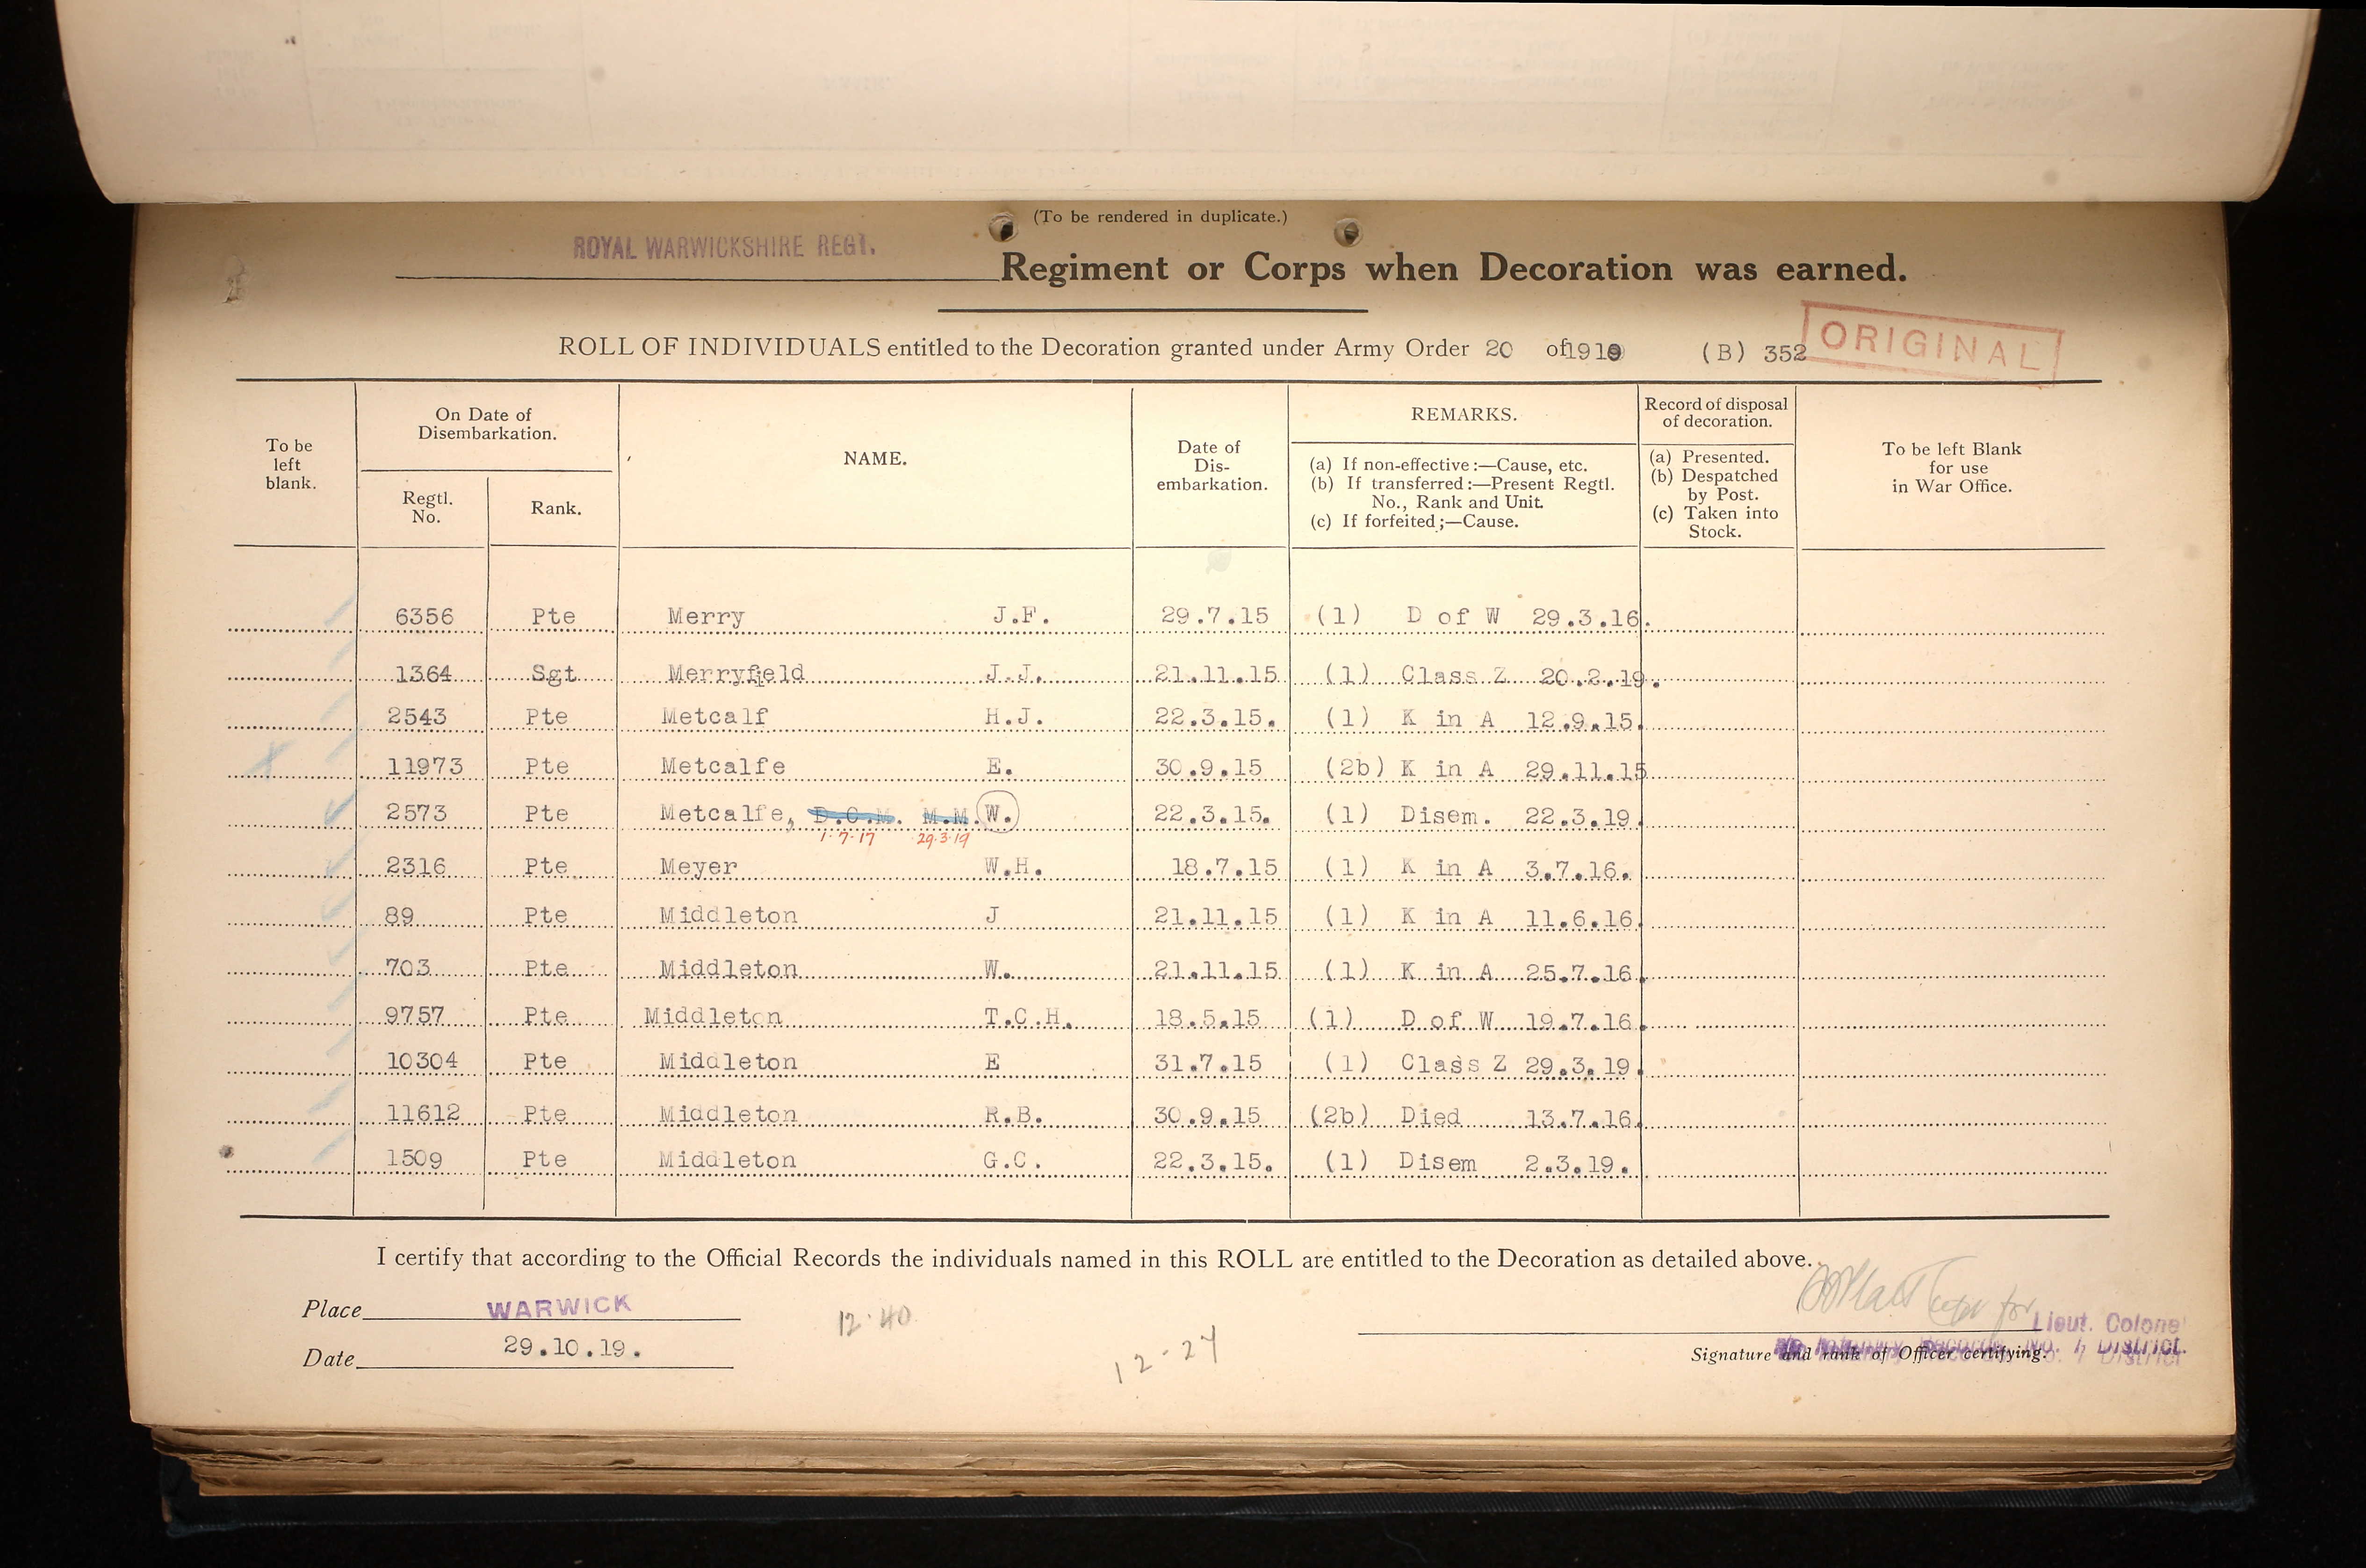 (To be rendered in duplicate.)
ROYAL WARWICKSHIRE REGT. Regiment or Corps when Decoration was earned.
ROLL OF INDIVIDUALS entitled to the Decoration granted under Army Order 20 of 1919 (B) 352
ORIGINAL
To be left blank.
On Date of Disembarkation.
Regtl. No.
Rank.
NAME.
Date of Dis-embarkation.
REMARKS.
(a) If non-effective:—Cause, etc.
(b) If transferred:—Present Regtl. No., Rank and Unit.
(c) If forfeited;—Cause.
Record of disposal of decoration.
(a) Presented.
(b) Despatched by Post.
(c) Taken into Stock.
To be left Blank for use in War Office.
6356 Pte Merry J.F. 29.7.15 (1) D of W 29.3.16.
1364 Sgt Merryfield J.J. 21.11.15 (1) Class Z 20.2.19.
2543 Pte Metcalf H.J. 22.3.15. (1) K in A 12.9.15.
11973 Pte Metcalfe E. 30.9.15 (2b) K in A 29.11.15
2573 Pte Metcalfe, D.C.M. M.M. W. 22.3.15. (1) Disem. 22.3.19.
1.7.17 29.3.19
2316 Pte Meyer W.H. 18.7.15 (1) K in A 3.7.16.
89 Pte Middleton J 21.11.15 (1) K in A 11.6.16.
703 Pte Middleton W. 21.11.15 (1) K in A 25.7.16.
9757 Pte Middleton T.C.H. 18.5.15 (1) D of W 19.7.16.
10304 Pte Middleton E 31.7.15 (1) Class Z 29.3.19.
11612 Pte Middleton R.B. 30.9.15 (2b) Died 13.7.16.
1509 Pte Middleton G.C. 22.3.15. (1) Disem 2.3.19.
I certify that according to the Official Records the individuals named in this ROLL are entitled to the Decoration as detailed above.
Place WARWICK
12.40
for Lieut. Colonel
Date 29.10.19.
12-24
Signature and rank of Officer certifying.
Records, No. 1, District.